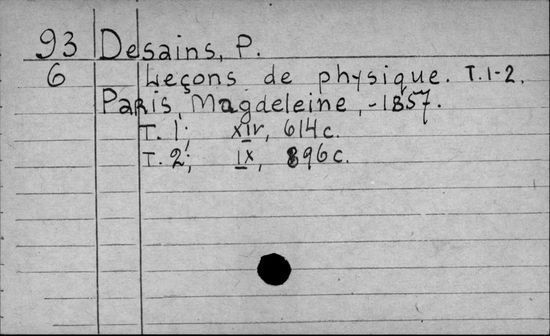 93 Desains, P.
6 Leçons de physique. T.1-2.
Paris, Magdeleine, -1857.
T. 1; XIV, 614 c.
T. 2; IX, 896 c.